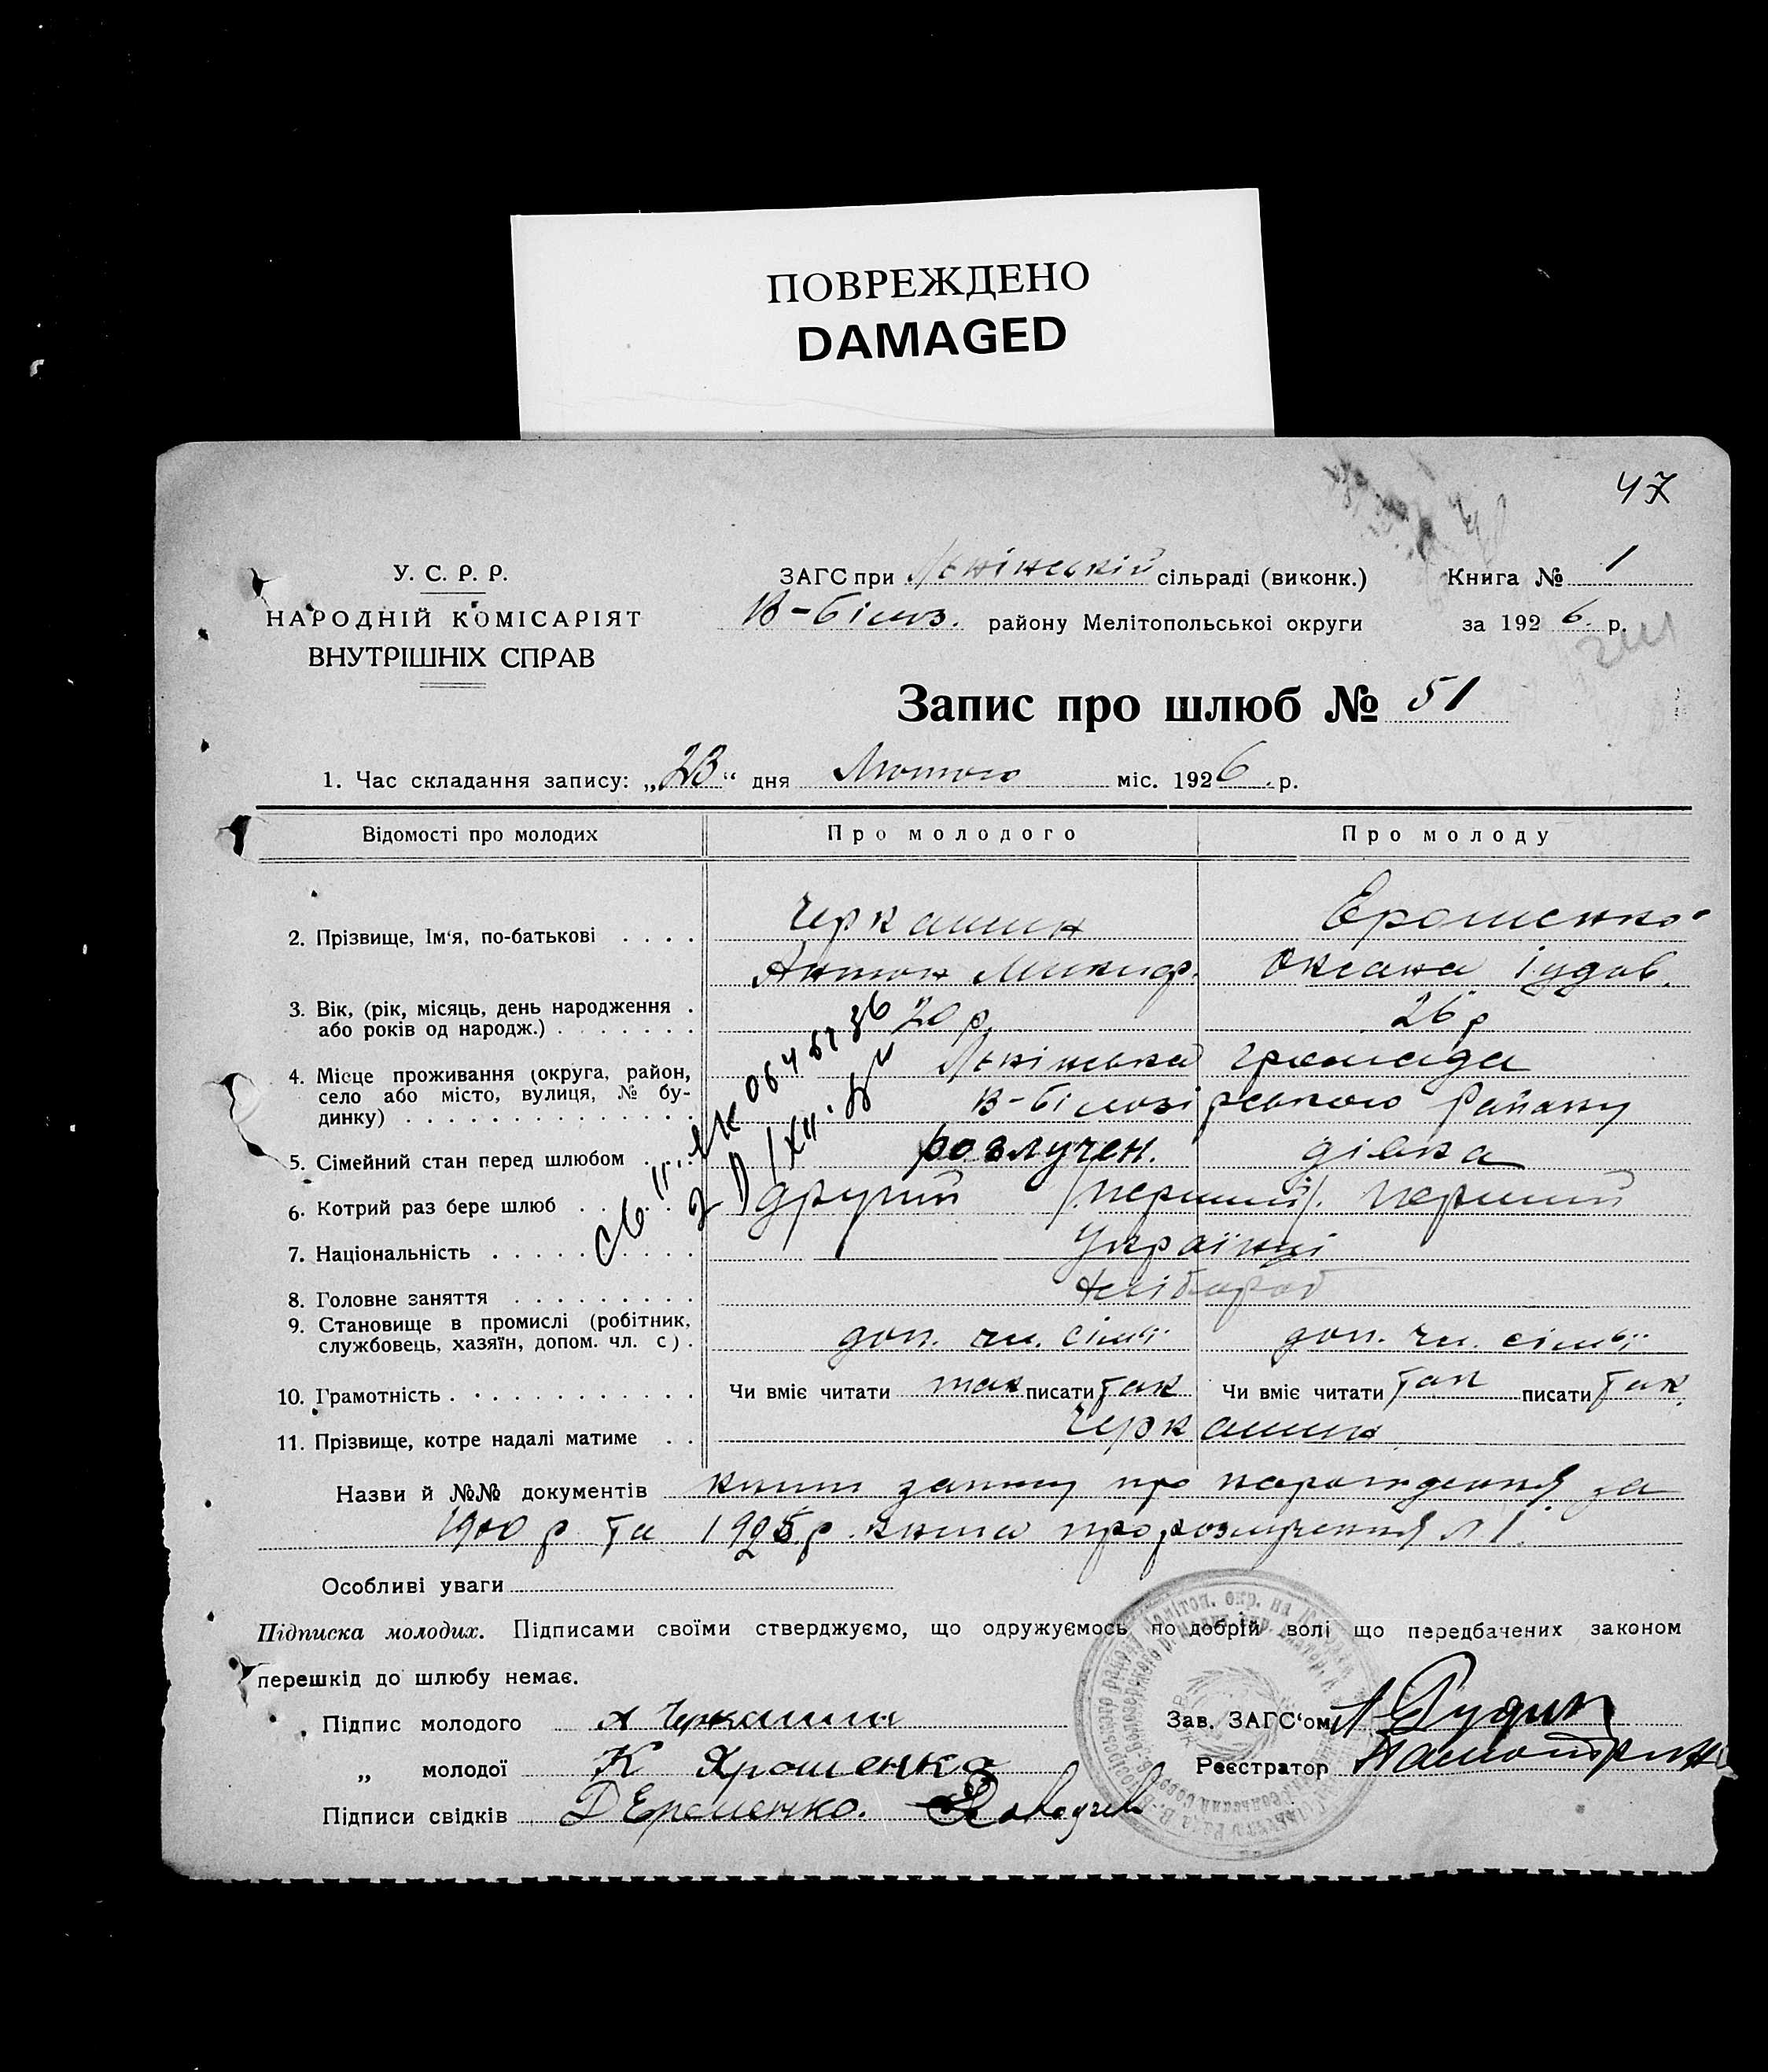 ПОВРЕЖДЕНО
DAMAGED
47
У. С. Р. Р.
НАРОДНІЙ КОМІСАРІЯТ
ВНУТРІШНІХ СПРАВ
ЗАГС при Ленінській сільраді (виконк.)
Книга № 1
В-Білоз. району Мелітопольської округи
за 1926. р.
Запис про шлюб № 51
1. Час складання запису: „23“ дня Лютого міс. 1926. р.
Відомості про молодих
Про молодого
Про молоду
2. Прізвище, Ім‘я, по-батькові . . . .
Черкашин
Ерошенко
Антон Микиф.
Оксана Іудов.
3. Вік, (рік, місяць, день народження .
або років од народж.) . . . . . . .
20 р
26 р
4. Місце проживання (округа, район,
село або місто, вулиця, № бу-
динку) . . . . . . . . . . . . . .
Ленінська громада
В-Білозірського Району
5. Сімейний стан перед шлюбом . . .
розлучен.
дівка
6. Котрий раз бере шлюб . . . . .
другий /первший/.
первший
7. Національність . . . . . . . . .
Українці
8. Головне заняття . . . . . . . . .
хлібороб
9. Становище в промислі (робітник,
службовець, хазяїн, допом. чл. с) .
доп. чл. сім'ї
доп. чл. сім'ї
10. Грамотність . . . . . . . . . . .
Чи вміє читати так писати так
Чи вміє читати так писати так
11. Прізвище, котре надалі матиме . .
Черкашин
Назви й №№ документів книги запису про народження за
1900 р та 1925 р. книга про розлучення № 1.
Особливі уваги
Підписка молодих. Підписами своїми стверджуємо, що одружуємось по добрій волі що передбачених законом
перешкід до шлюбу немає.
Підпис молодого А Черкашин
Зав. ЗАГС‘ом
„ молодої К Ярошенко
Реєстратор
Підписи свідків Д Ерошенко.